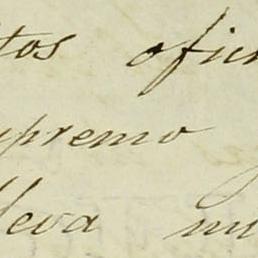 tos ofici
upremo
lleva mu